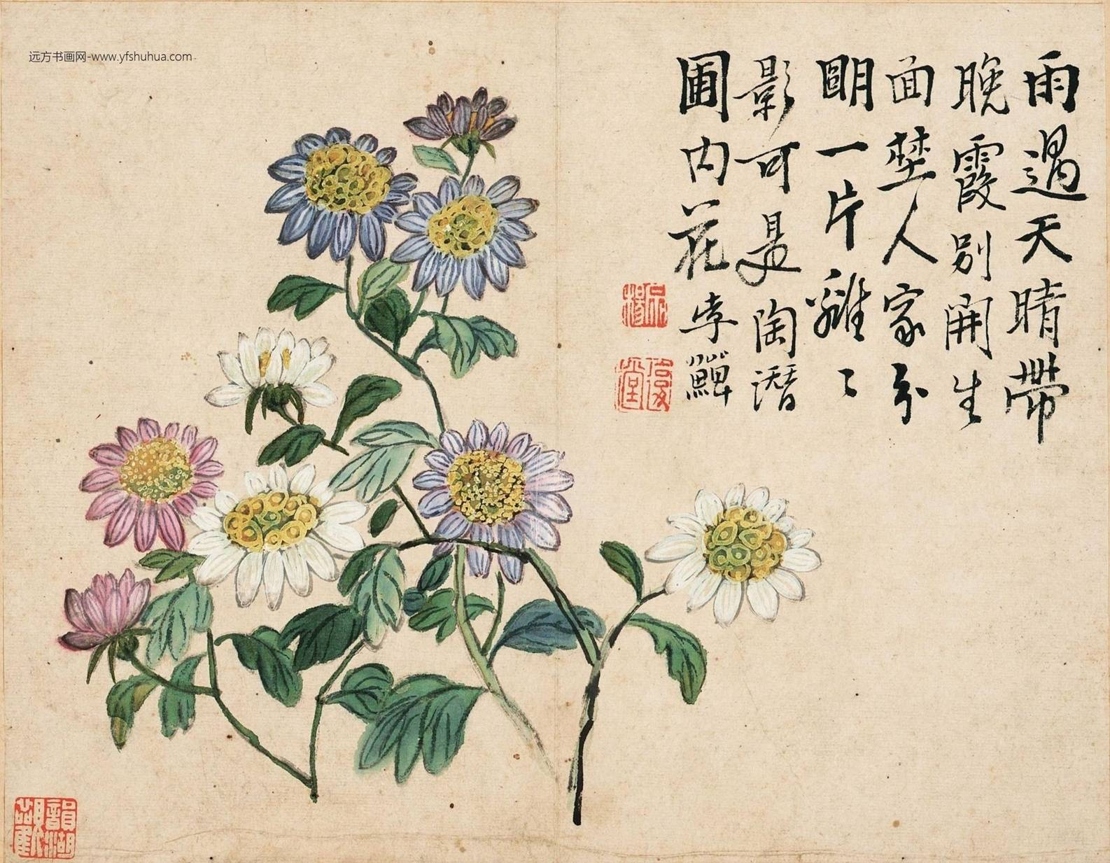 远方书画网-www.yfshuhua.com
雨過天晴帶
晚霞別開生
面埜人家分
朙一片離〻
影可是陶潛
圃内花李鱓
復堂